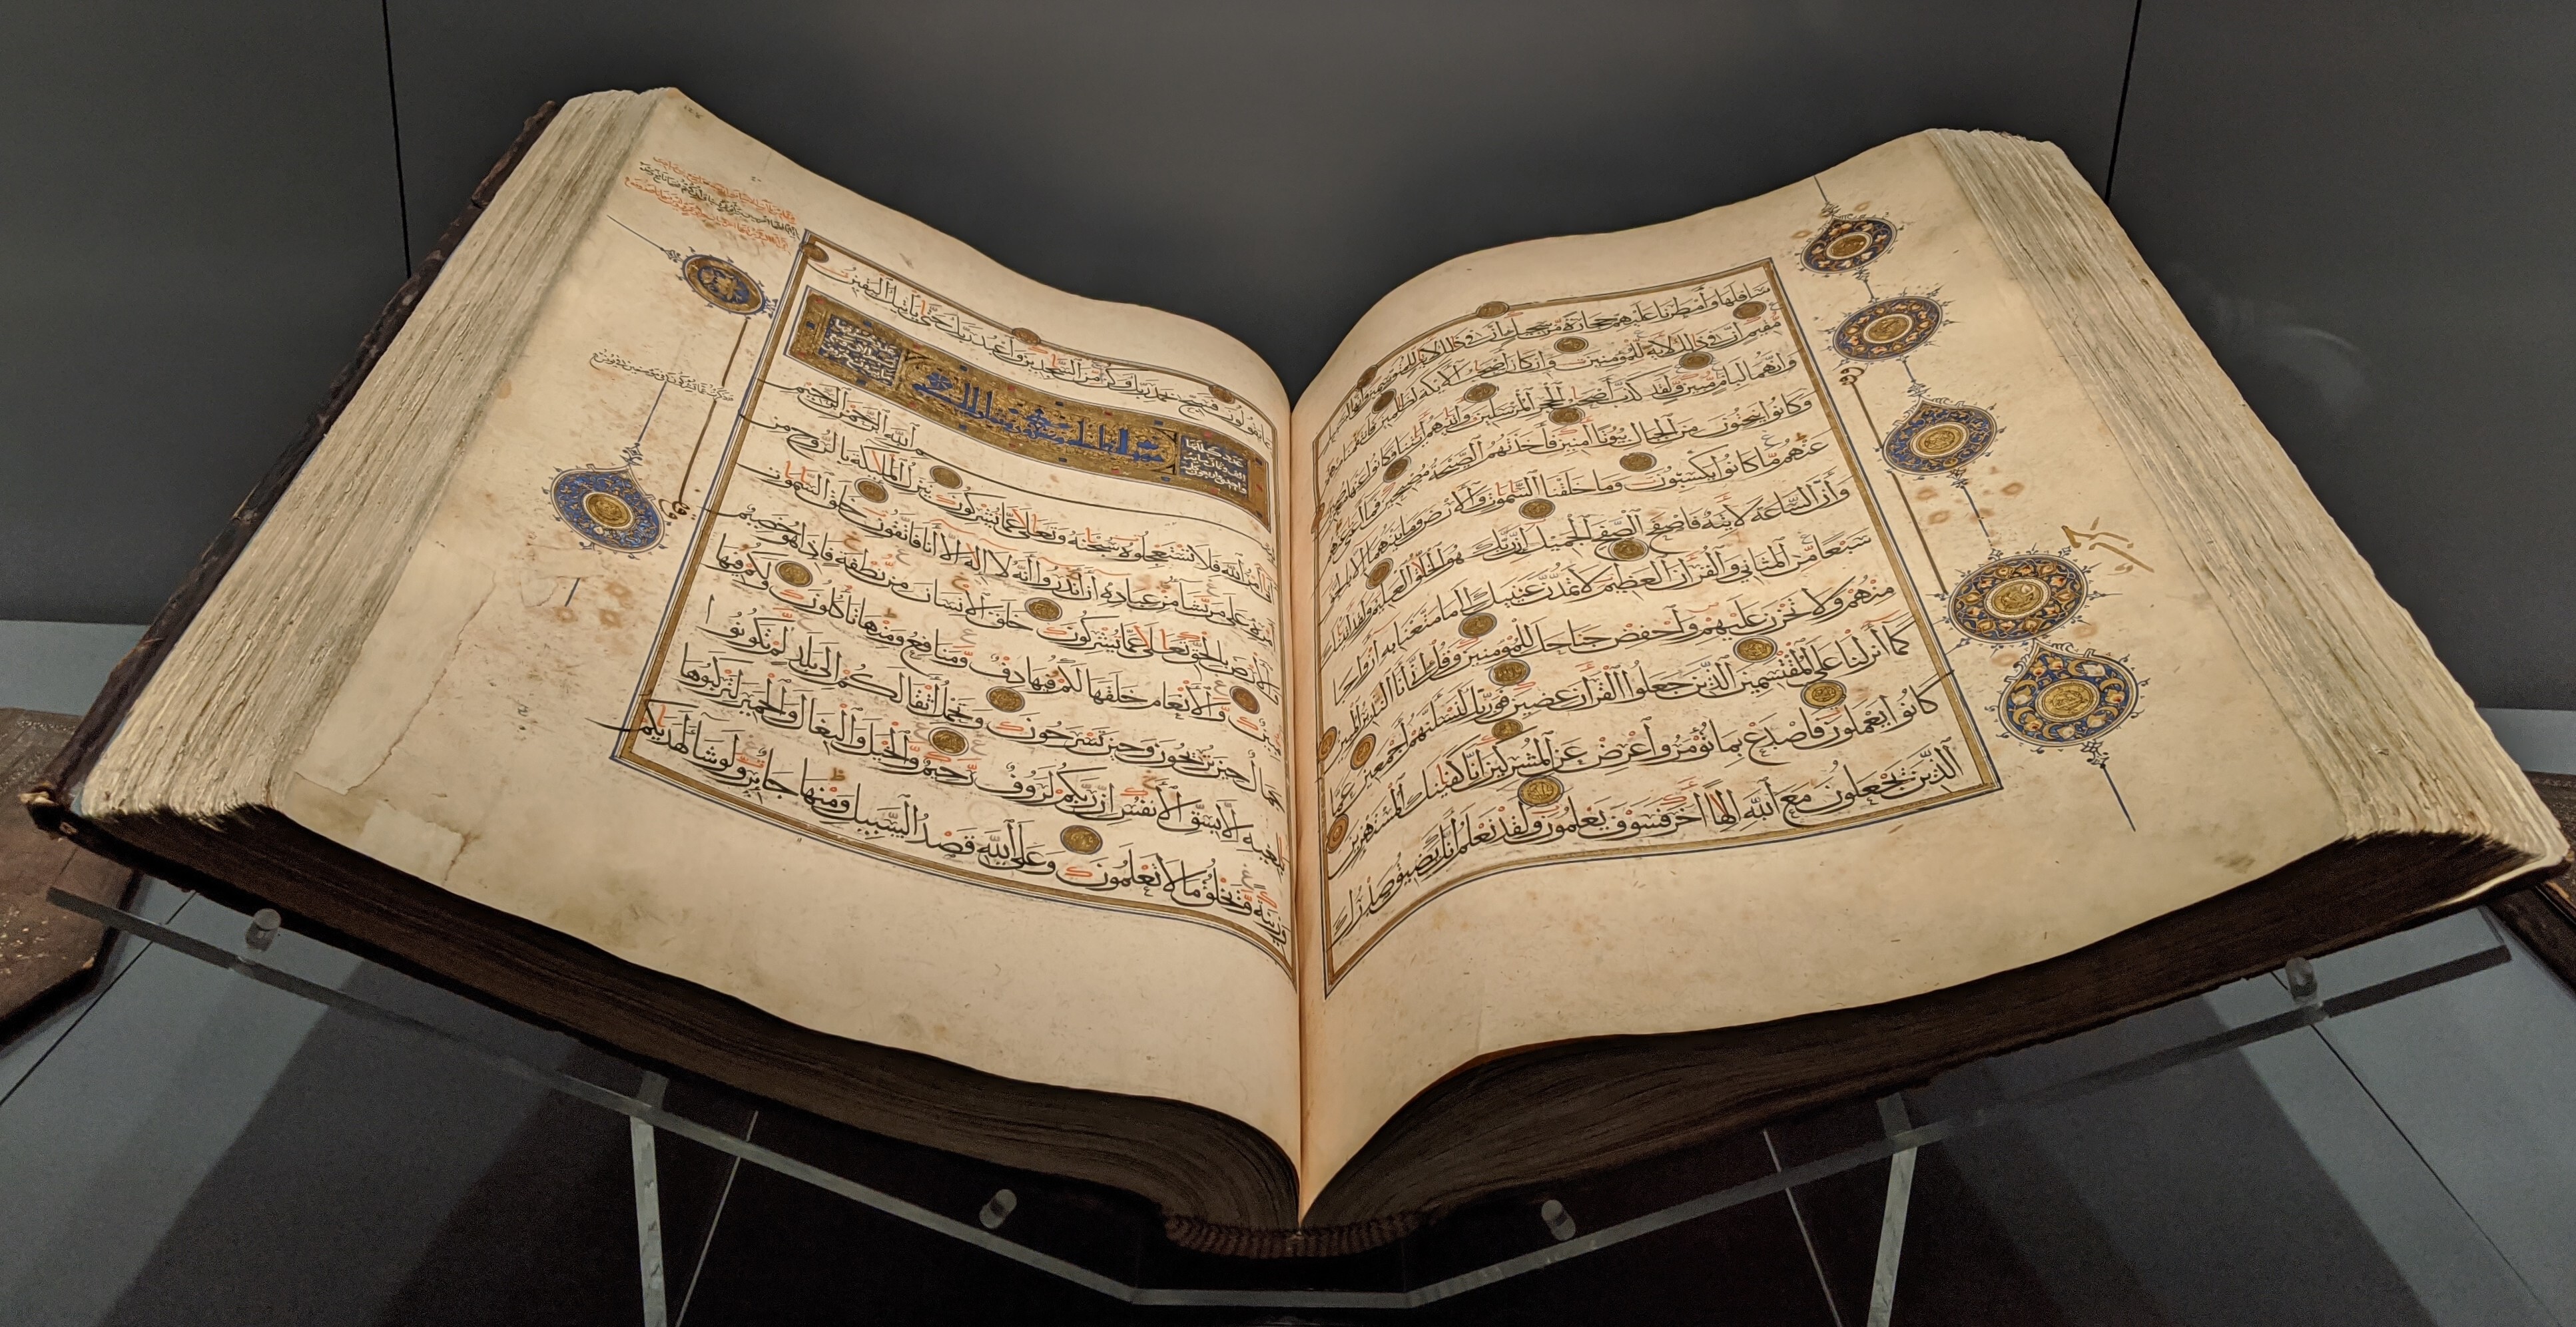 سافلها وأمطرنا عليهم حجارة من سجيل إن في ذلك لآيات للمتوسمين وإنها لبسبيل
مقيم إن في ذلك لآية للمؤمنين وإن كان أصحاب الأيكة لظالمين فانتقمنا منهم
وإنهما لبإمام مبين ولقد كذب أصحاب الحجر المرسلين وآتيناهم آياتنا فكانوا عنها معرضين
وكانوا ينحتون من الجبال بيوتا آمنين فأخذتهم الصيحة مصبحين فما أغنى
عنهم ما كانوا يكسبون وما خلقنا السموات والأرض وما بينهما إلا بالحق
وإن الساعة لآتية فاصفح الصفح الجميل إن ربك هو الخلاق العليم ولقد آتيناك
سبعا من المثاني والقرآن العظيم لا تمدن عينيك إلى ما متعنا به أزواجا
منهم ولا تحزن عليهم واخفض جناحك للمؤمنين وقل إني أنا النذير المبين
كما أنزلنا على المقتسمين الذين جعلوا القرآن عضين فوربك لنسألنهم أجمعين عما
كانوا يعملون فاصدع بما تؤمر وأعرض عن المشركين إنا كفيناك المستهزئين
الذين يجعلون مع الله إلها آخر فسوف يعلمون ولقد نعلم أنك يضيق صدرك
بما يقولون فسبح بحمد ربك وكن من الساجدين واعبد ربك حتى يأتيك اليقين
بسم الله الرحمن الرحيم
أتى أمر الله فلا تستعجلوه سبحنه وتعالى عما يشركون ينزل الملئكة بالروح من
أمره على من يشاء من عباده أن أنذروا أنه لا إله إلا أنا فاتقون خلق السموت
والأرض بالحق تعالى عما يشركون خلق الإنسان من نطفة فإذا هو خصيم
مبين والأنعام خلقها لكم فيها دفء ومنافع ومنها تأكلون ولكم فيها
جمال حين تريحون وحين تسرحون وتحمل أثقالكم إلى بلد لم تكونوا
بالغيه إلا بشق الأنفس إن ربكم لرؤف رحيم والخيل والبغال والحمير لتركبوها
وزينة ويخلق ما لا تعلمون وعلى الله قصد السبيل ومنها جائر ولو شاء لهديكم